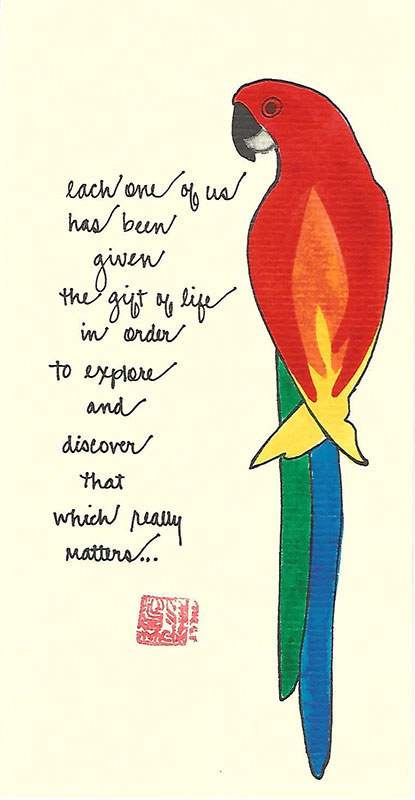 each one of us
has been
given
the gift of life
in order
to explore
and
discover
that
which really
matters...